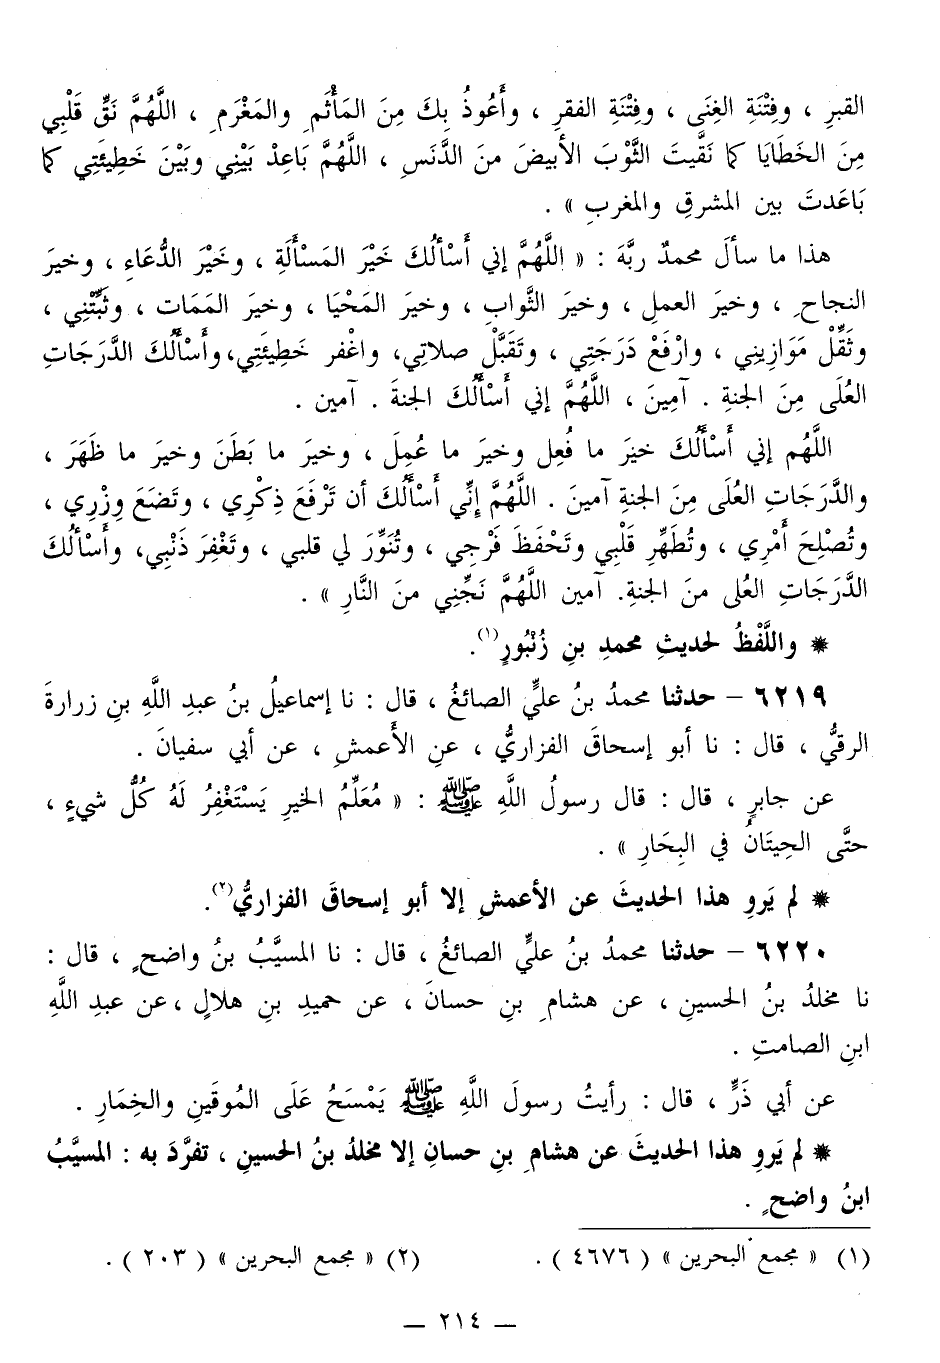 القبرِ ، وفِتْنَةِ الغِنَى ، وفِتْنَةِ الفقرِ ، وأَعُوذُ بِكَ مِنَ المَأْثَمِ والمَغْرَمِ ، اللَّهُمَّ نَقِّ قَلْبِي
مِنَ الخَطَايَا كما نَقَّيتَ الثَّوْبَ الأبيضَ منَ الدَّنَسِ ، اللَّهُمَّ بَاعِدْ بَيْنِي وبَيْنَ خَطِيئَتِي كما
بَاعَدتَ بين المشرقِ والمغربِ » .
هذا ما سألَ محمدٌ ربَّهَ : « اللَّهُمَّ إني أَسْأَلُكَ خَيْرَ المَسْأَلَةِ ، وخَيْرَ الدُّعَاءِ ، وخيرَ
النجاحِ ، وخيرَ العملِ ، وخيرَ الثَّوابِ ، وخيرَ المَحْيَا ، وخيرَ المَمَات ، وثَبِّتْنِي ،
وثَقِّلْ مَوَازِينِي ، وارْفَعْ دَرَجَتِي ، وتَقَبَّلْ صلاتِي، واغْفر خَطِيئَتِي، وأَسْأَلُكَ الدَّرَجَاتِ
العُلَى مِنَ الجنةِ . آمِينَ ، اللَّهُمَّ إني أَسْأَلُكَ الجنةَ . آمين .
اللَّهُم إني أَسْأَلُكَ خيرَ ما فُعِل وخيرَ ما عُمِلَ ، وخيرَ ما بَطَنَ وخيرَ ما ظَهَرَ ،
والدَّرَجَاتِ العُلَى مِنَ الجنةِ آمينَ . اللَّهُمَّ إنِّي أَسْأَلُكَ أن تَرْفَعَ ذِكْرِي ، وتَضَعَ وِزْرِي ،
وتُصْلِحَ أَمْرِي ، وتُطَهِّرِ قَلْبِي وتَحْفَظَ فَرْجِي ، وتُنَوِّرَ لي قلبي ، وتَغْفِرَ ذَنْبِي، وأَسْألُكَ
الدَّرَجَاتِ العُلى منَ الجنةِ. آمين اللَّهُمَّ نَجِّنِي منَ النَّارِ » .
* واللَّفْظُ لحديثِ محمدِ بنِ زُنْبُورٍ(١).
٦٢١٩ – حدثنا محمدُ بنُ عليٍّ الصائغُ ، قال : نا إسماعيلُ بنُ عبدِ اللَّهِ بنِ زرارةَ
الرقيُّ ، قال : نا أبو إسحاقَ الفزاريُّ ، عنِ الأَعمشِ ، عن أبي سفيانَ .
عن جابرٍ ، قال : قال رسولُ اللَّهِ ﷺ : « مُعَلِّمُ الخيرِ يَسْتَغْفِرُ لَهُ كُلُّ شيءٍ ،
حتَّى الحِيتَانُ في البِحَارِ » .
* لم يَروِ هذا الحديثَ عن الأعمشِ إلا أبو إسحاقَ الفزاريُّ(٢).
٦٢٢٠ – حدثنا محمدُ بنُ عليٍّ الصائغُ ، قال : نا المسيَّبُ بنُ واضحٍ ، قال :
نا مخلدُ بنُ الحسينِ ، عن هشامِ بنِ حسانَ ، عن حميدِ بنِ هلالٍ ، عن عبدِ اللَّهِ
ابنِ الصامتِ .
عن أبي ذَرٍّ ، قال : رأيتُ رسولَ اللَّهِ ﷺ يَمْسَحُ عَلَى المُوقَينِ والخِمَارِ .
* لم يَروِ هذا الحديثَ عن هشامِ بنِ حسانِ إلا مخلدُ بنُ الحسينِ ، تفرَّدَ به : المسيَّبُ
ابنُ واضحٍ .
(١) « مجمع البحرين » ( ٤٦٧٦ ) . (٢) « مجمع البحرين » ( ٢٠٣ ) .
— ٢١٤ —